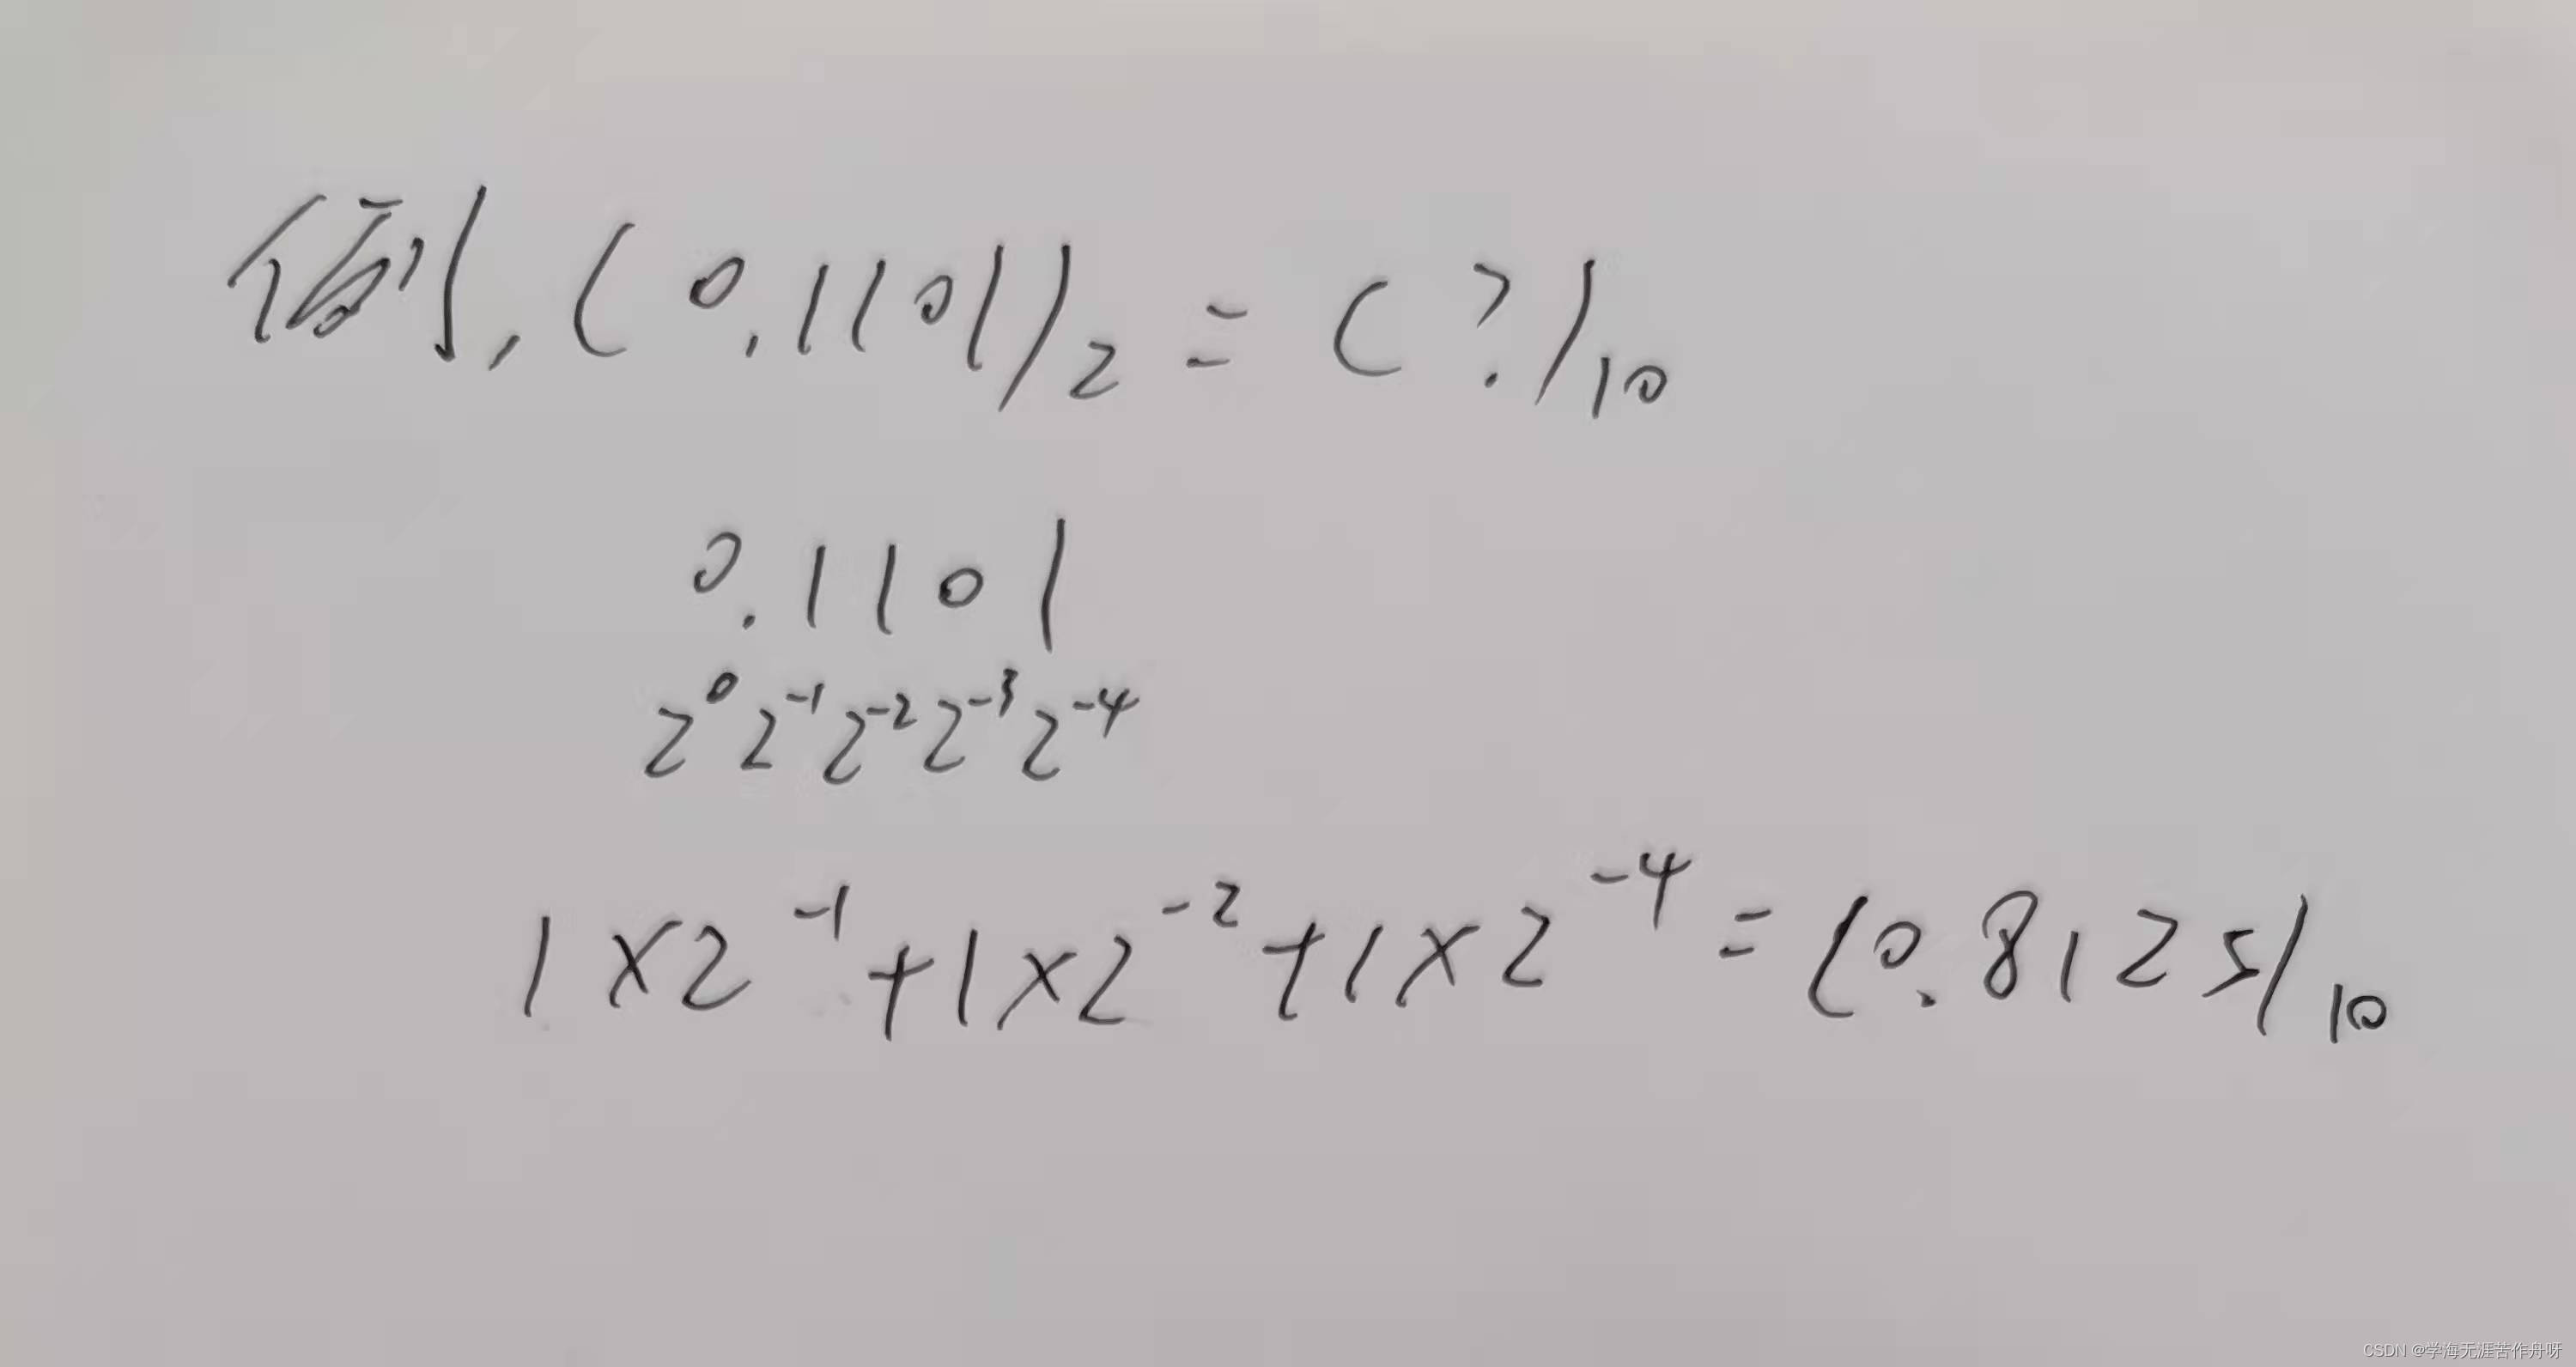 例,(0.1101)₂=(?)₁₀
0.1101
2⁰2⁻¹2⁻²2⁻³2⁻⁴
1×2⁻¹+1×2⁻²+1×2⁻⁴=(0.8125)₁₀
CSDN @学海无涯苦作舟呀